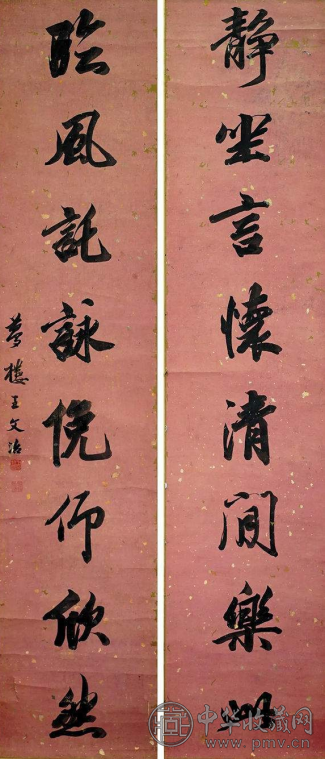 靜坐言懷清閒樂
臨風託詠俛仰欣然
夢樓王文治
中华收藏网
www.pmv.cn